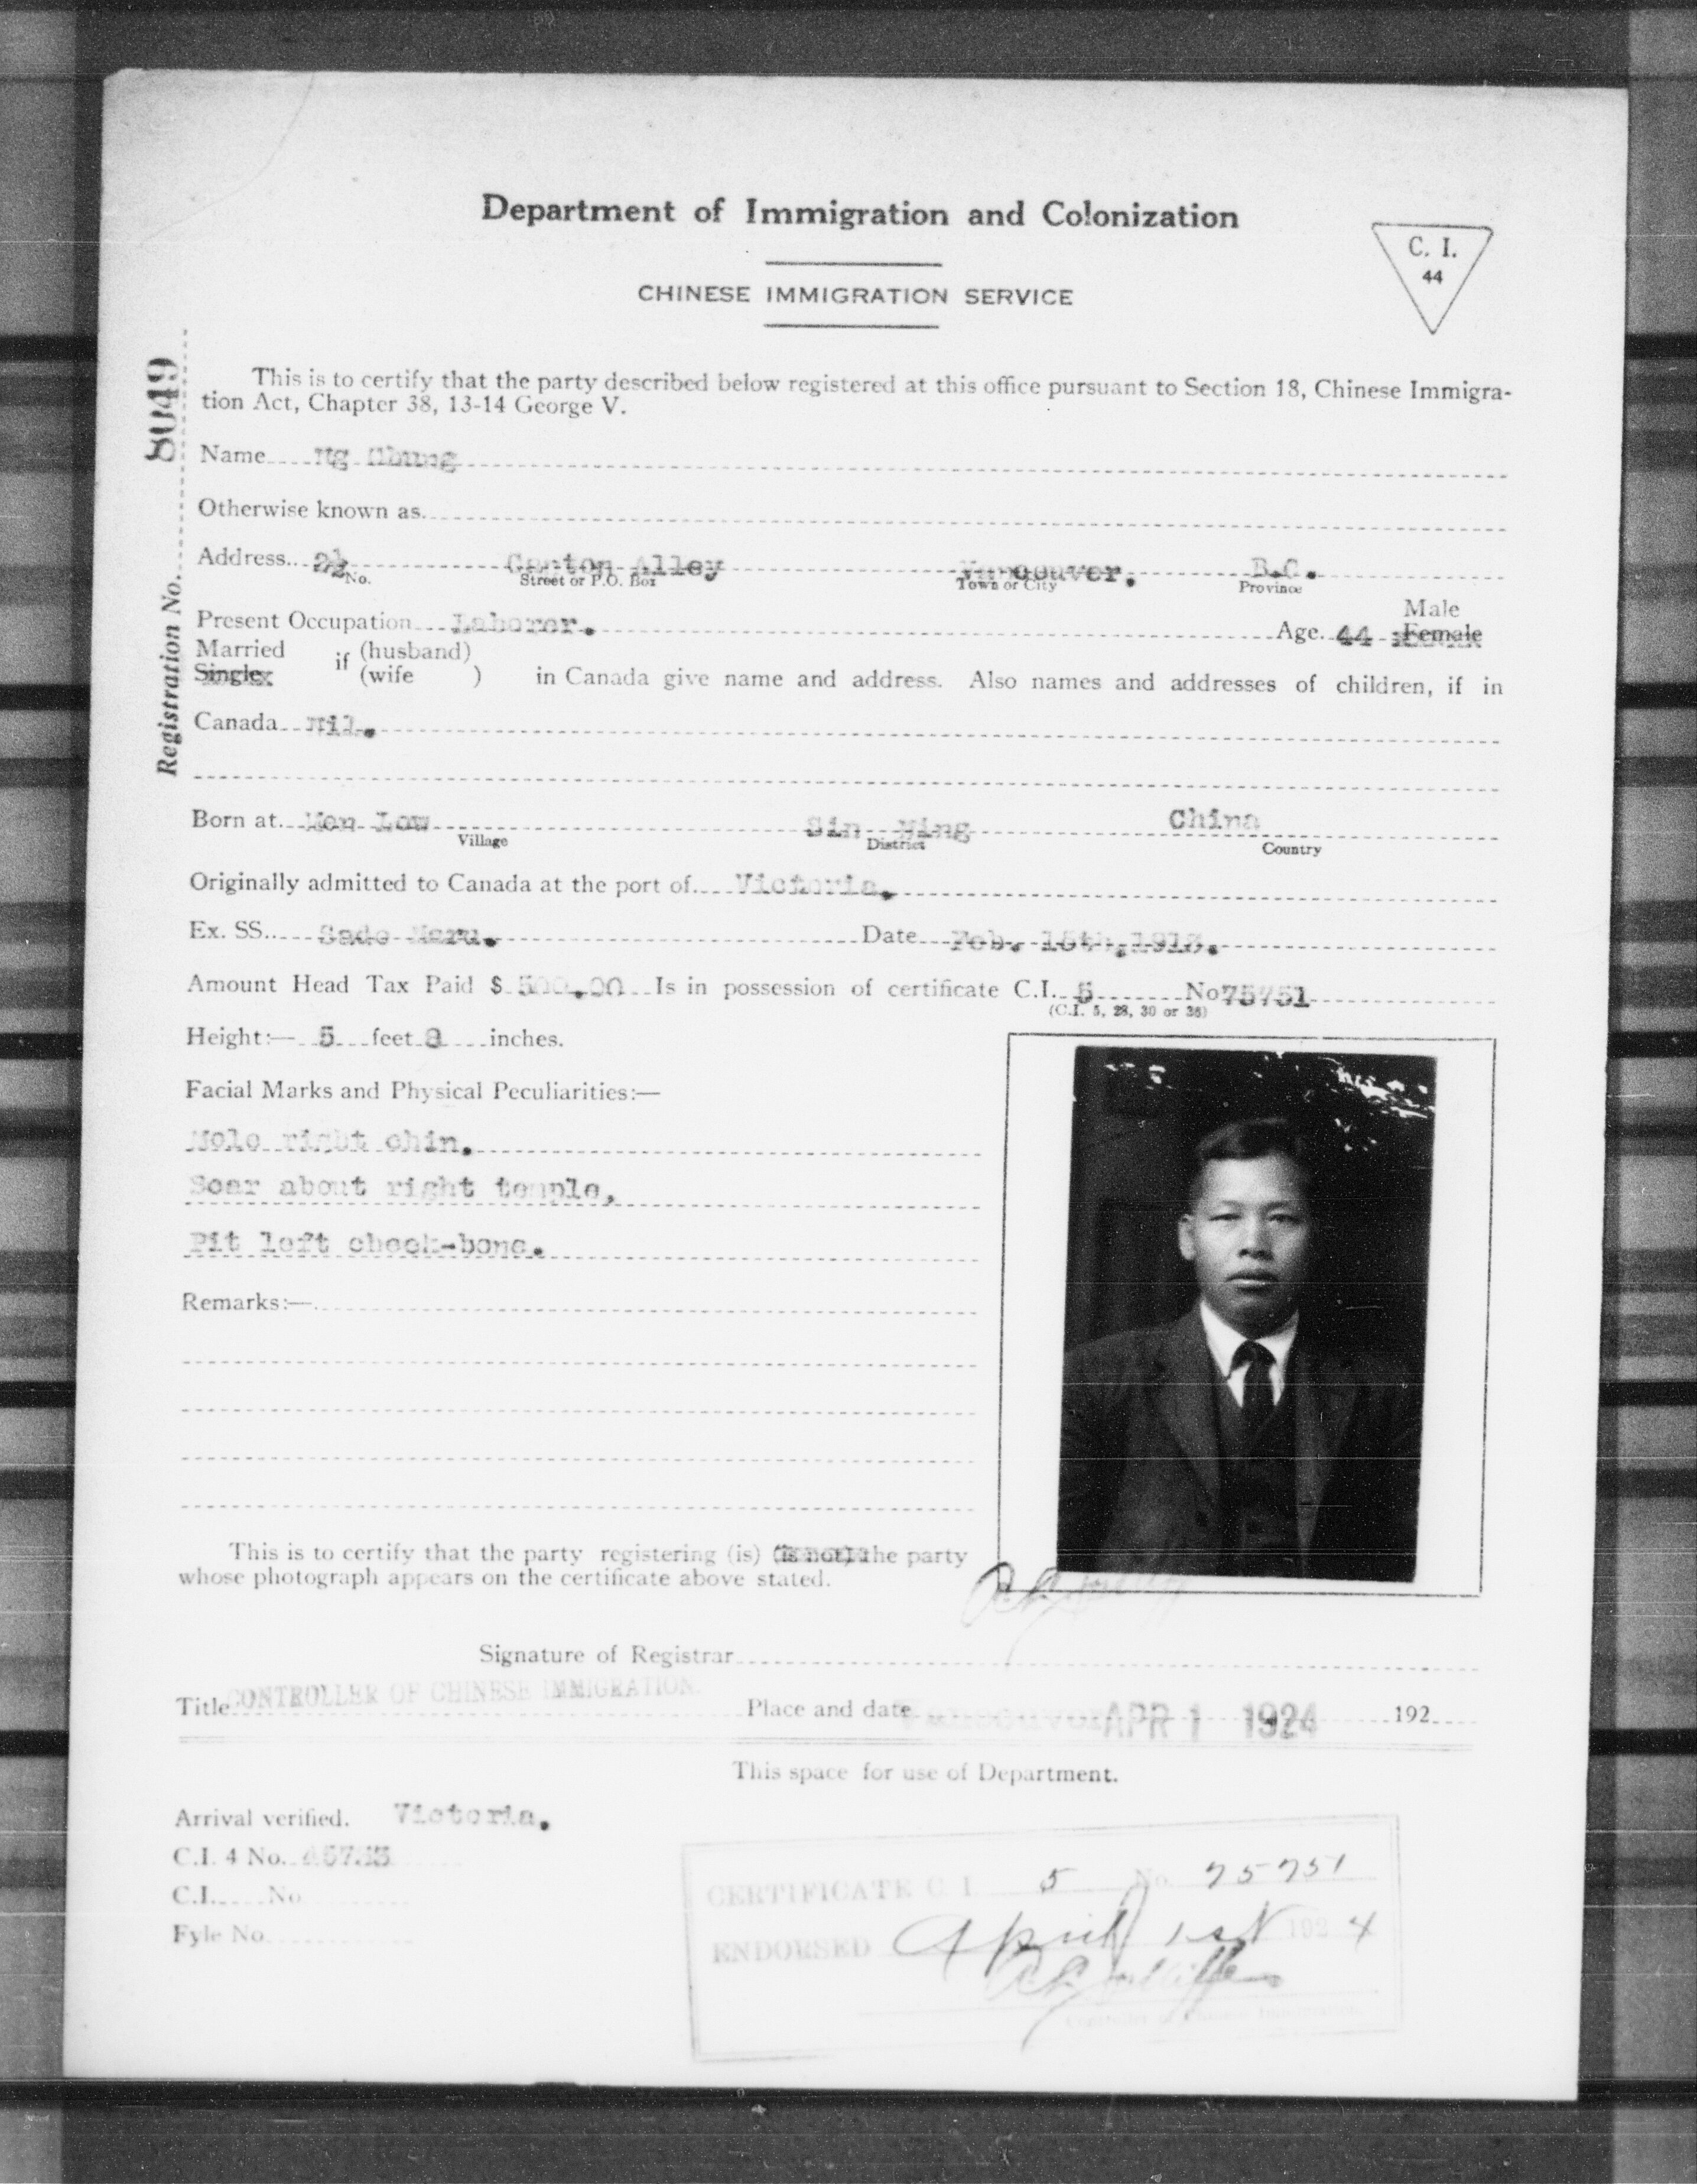 Department of Immigration and Colonization
CHINESE IMMIGRATION SERVICE
C. I.
44
Registration No. 8049
This is to certify that the party described below registered at this office pursuant to Section 18, Chinese Immigra-
tion Act, Chapter 38, 13-14 George V.
Name Ng Chung
Otherwise known as
Address 2½ Canton Alley Vancouver. B.C.
No. Street or P.O. Box Town or City Province
Male
Present Occupation Laborer. Age 44 Female
Married if (husband)
Single (wife ) in Canada give name and address. Also names and addresses of children, if in
Canada Nil.
Born at Men Low Sin Ning China
Village District Country
Originally admitted to Canada at the port of Victoria.
Ex. SS. Sado Maru. Date Feb. 15th, 1913.
Amount Head Tax Paid $ 500.00 Is in possession of certificate C.I. 5 No 75751
(C.I. 5, 28, 30 or 36)
Height:— 5 feet 8 inches.
Facial Marks and Physical Peculiarities:—
Mole right chin.
Scar about right temple,
Pit left cheek-bone.
Remarks:—
This is to certify that the party registering (is) (is not) the party
whose photograph appears on the certificate above stated.
Signature of Registrar
Title CONTROLLER OF CHINESE IMMIGRATION. Place and date Vancouver APR 1 1924 192
This space for use of Department.
Arrival verified. Victoria.
C.I. 4 No.
C.I. No
Fyle No.
CERTIFICATE C. I. 5 No. 75751
ENDORSED April 1st 1924
Controller of Chinese Immigration.